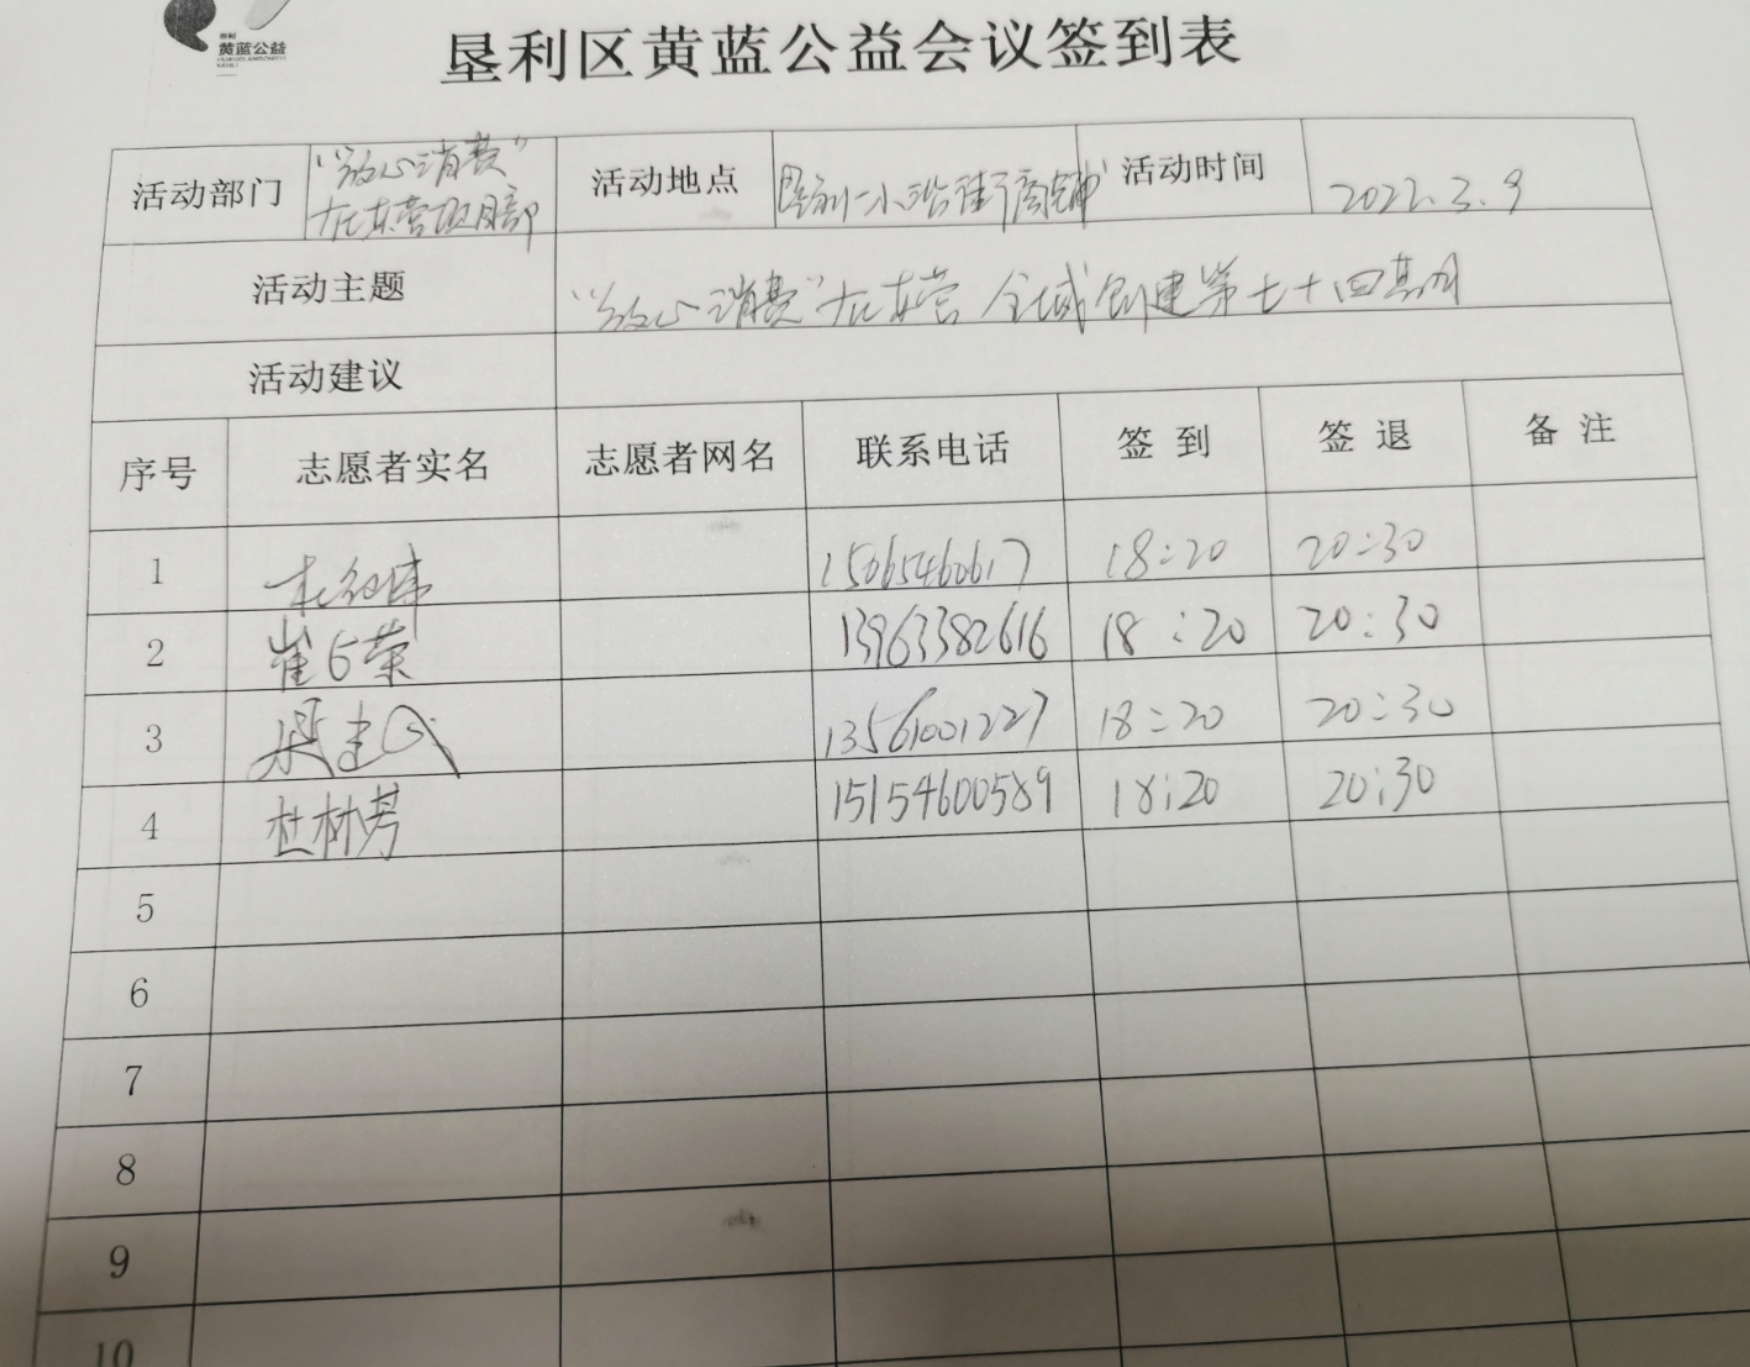 垦利
黄蓝公益
垦利区黄蓝公益会议签到表
活动部门 "放心消费" 在东营项目部 活动地点 垦利一小沿街商铺 活动时间 2022.3.9
活动主题 "放心消费"在东营 全域创建第七十四期
活动建议
序号 志愿者实名 志愿者网名 联系电话 签 到 签 退 备 注
1 15065460617 18:20 20:30
2 崔百荣 13963382616 18:20 20:30
3 梁建民 13561001227 18:20 20:30
4 杜林芳 15154600589 18:20 20:30
5
6
7
8
9
10